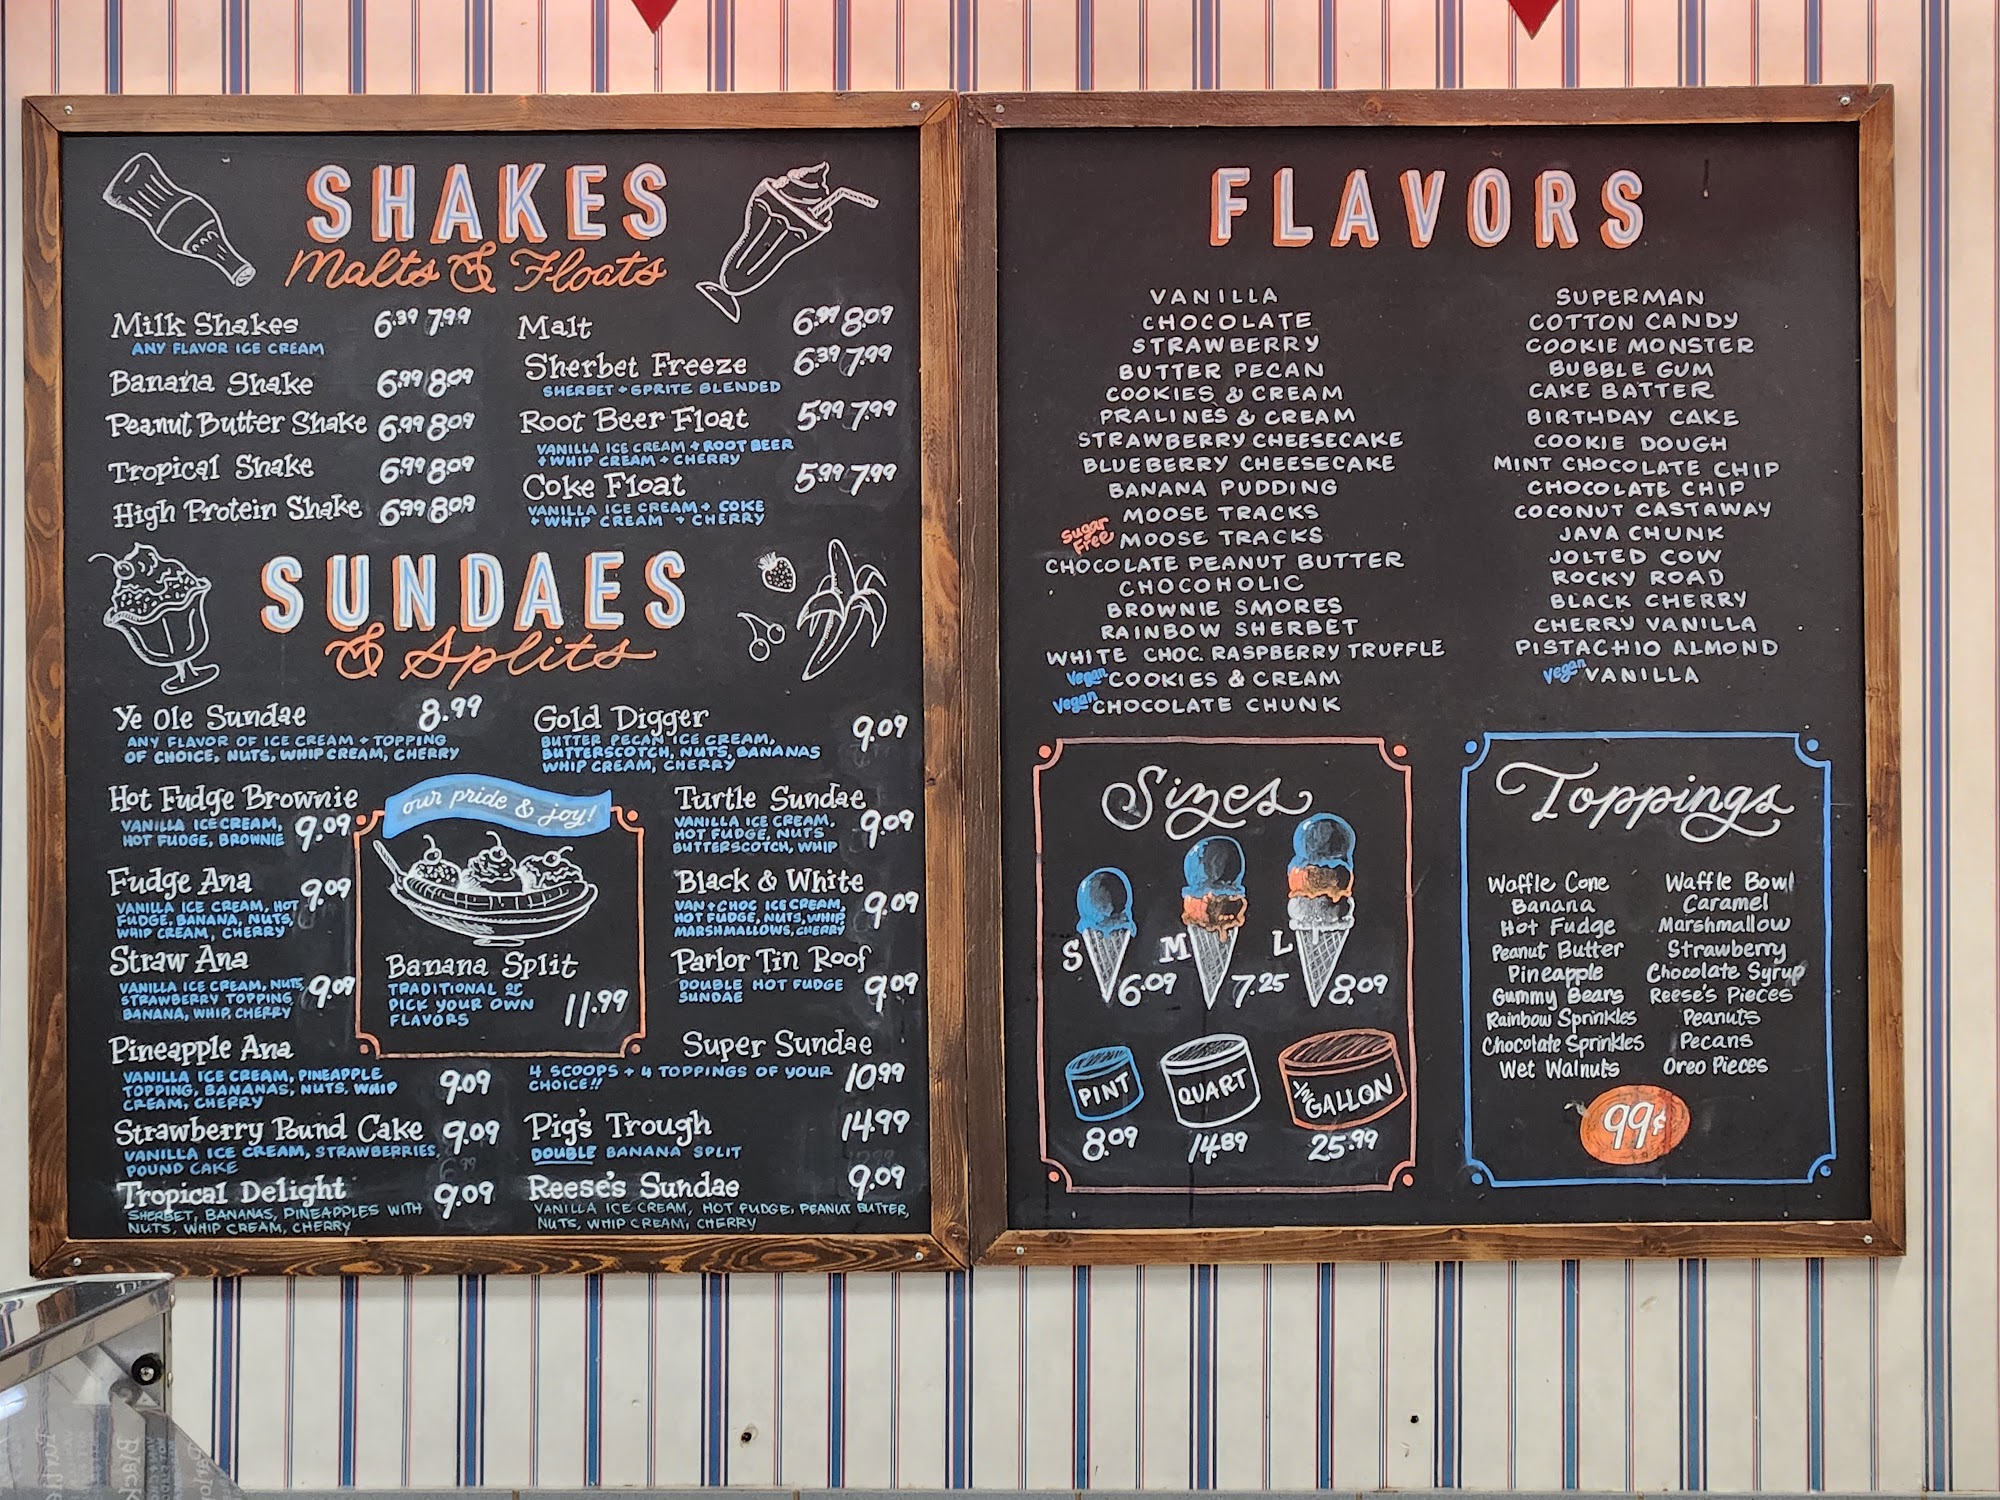 SHAKES
Malts & Floats
Milk Shakes 6.39 7.99
ANY FLAVOR ICE CREAM
Banana Shake 6.99 8.09
Peanut Butter Shake 6.99 8.09
Tropical Shake 6.99 8.09
High Protein Shake 6.99 8.09
Malt 6.99 8.09
Sherbet Freeze 6.39 7.99
SHERBET + SPRITE BLENDED
Root Beer Float 5.99 7.99
VANILLA ICE CREAM + ROOT BEER
+ WHIP CREAM + CHERRY
Coke Float 5.99 7.99
VANILLA ICE CREAM + COKE
+ WHIP CREAM + CHERRY
SUNDAES
& Splits
Ye Ole Sundae 8.99
ANY FLAVOR OF ICE CREAM + TOPPING
OF CHOICE, NUTS, WHIP CREAM, CHERRY
Gold Digger 9.09
BUTTER PECAN ICE CREAM,
BUTTERSCOTCH, NUTS, BANANAS
WHIP CREAM, CHERRY
Hot Fudge Brownie
VANILLA ICE CREAM, 9.09
HOT FUDGE, BROWNIE
Fudge Ana 9.09
VANILLA ICE CREAM, HOT
FUDGE, BANANA, NUTS,
WHIP CREAM, CHERRY
Straw Ana
VANILLA ICE CREAM, NUTS, 9.09
STRAWBERRY TOPPING
BANANA, WHIP, CHERRY
our pride & joy!
Banana Split
TRADITIONAL OR
PICK YOUR OWN 11.99
FLAVORS
Turtle Sundae
VANILLA ICE CREAM, 9.09
HOT FUDGE, NUTS
BUTTERSCOTCH, WHIP
Black & White
VAN + CHOC ICE CREAM, 9.09
HOT FUDGE, NUTS, WHIP
MARSHMALLOWS, CHERRY
Parlor Tin Roof
DOUBLE HOT FUDGE 9.09
SUNDAE
Pineapple Ana
VANILLA ICE CREAM, PINEAPPLE 9.09
TOPPING, BANANAS, NUTS, WHIP
CREAM, CHERRY
Super Sundae
4 SCOOPS + 4 TOPPINGS OF YOUR 10.99
CHOICE!!
Strawberry Pound Cake 9.09
VANILLA ICE CREAM, STRAWBERRIES,
POUND CAKE
Pig's Trough 14.99
DOUBLE BANANA SPLIT
Tropical Delight 9.09
SHERBET, BANANAS, PINEAPPLES WITH
NUTS, WHIP CREAM, CHERRY
Reese's Sundae 9.09
VANILLA ICE CREAM, HOT FUDGE, PEANUT BUTTER,
NUTS, WHIP CREAM, CHERRY
FLAVORS
VANILLA
CHOCOLATE
STRAWBERRY
BUTTER PECAN
COOKIES & CREAM
PRALINES & CREAM
STRAWBERRY CHEESECAKE
BLUEBERRY CHEESECAKE
BANANA PUDDING
MOOSE TRACKS
Sugar Free MOOSE TRACKS
CHOCOLATE PEANUT BUTTER
CHOCOHOLIC
BROWNIE SMORES
RAINBOW SHERBET
WHITE CHOC. RASPBERRY TRUFFLE
Vegan COOKIES & CREAM
Vegan CHOCOLATE CHUNK
SUPERMAN
COTTON CANDY
COOKIE MONSTER
BUBBLE GUM
CAKE BATTER
BIRTHDAY CAKE
COOKIE DOUGH
MINT CHOCOLATE CHIP
CHOCOLATE CHIP
COCONUT CASTAWAY
JAVA CHUNK
JOLTED COW
ROCKY ROAD
BLACK CHERRY
CHERRY VANILLA
PISTACHIO ALMOND
Vegan VANILLA
Sizes
S M L
6.09 7.25 8.09
PINT QUART 1/2 GALLON
8.09 14.89 25.99
Toppings
Waffle Cone
Banana
Hot Fudge
Peanut Butter
Pineapple
Gummy Bears
Rainbow Sprinkles
Chocolate Sprinkles
Wet Walnuts
Waffle Bowl
Caramel
Marshmallow
Strawberry
Chocolate Syrup
Reese's Pieces
Peanuts
Pecans
Oreo Pieces
99¢